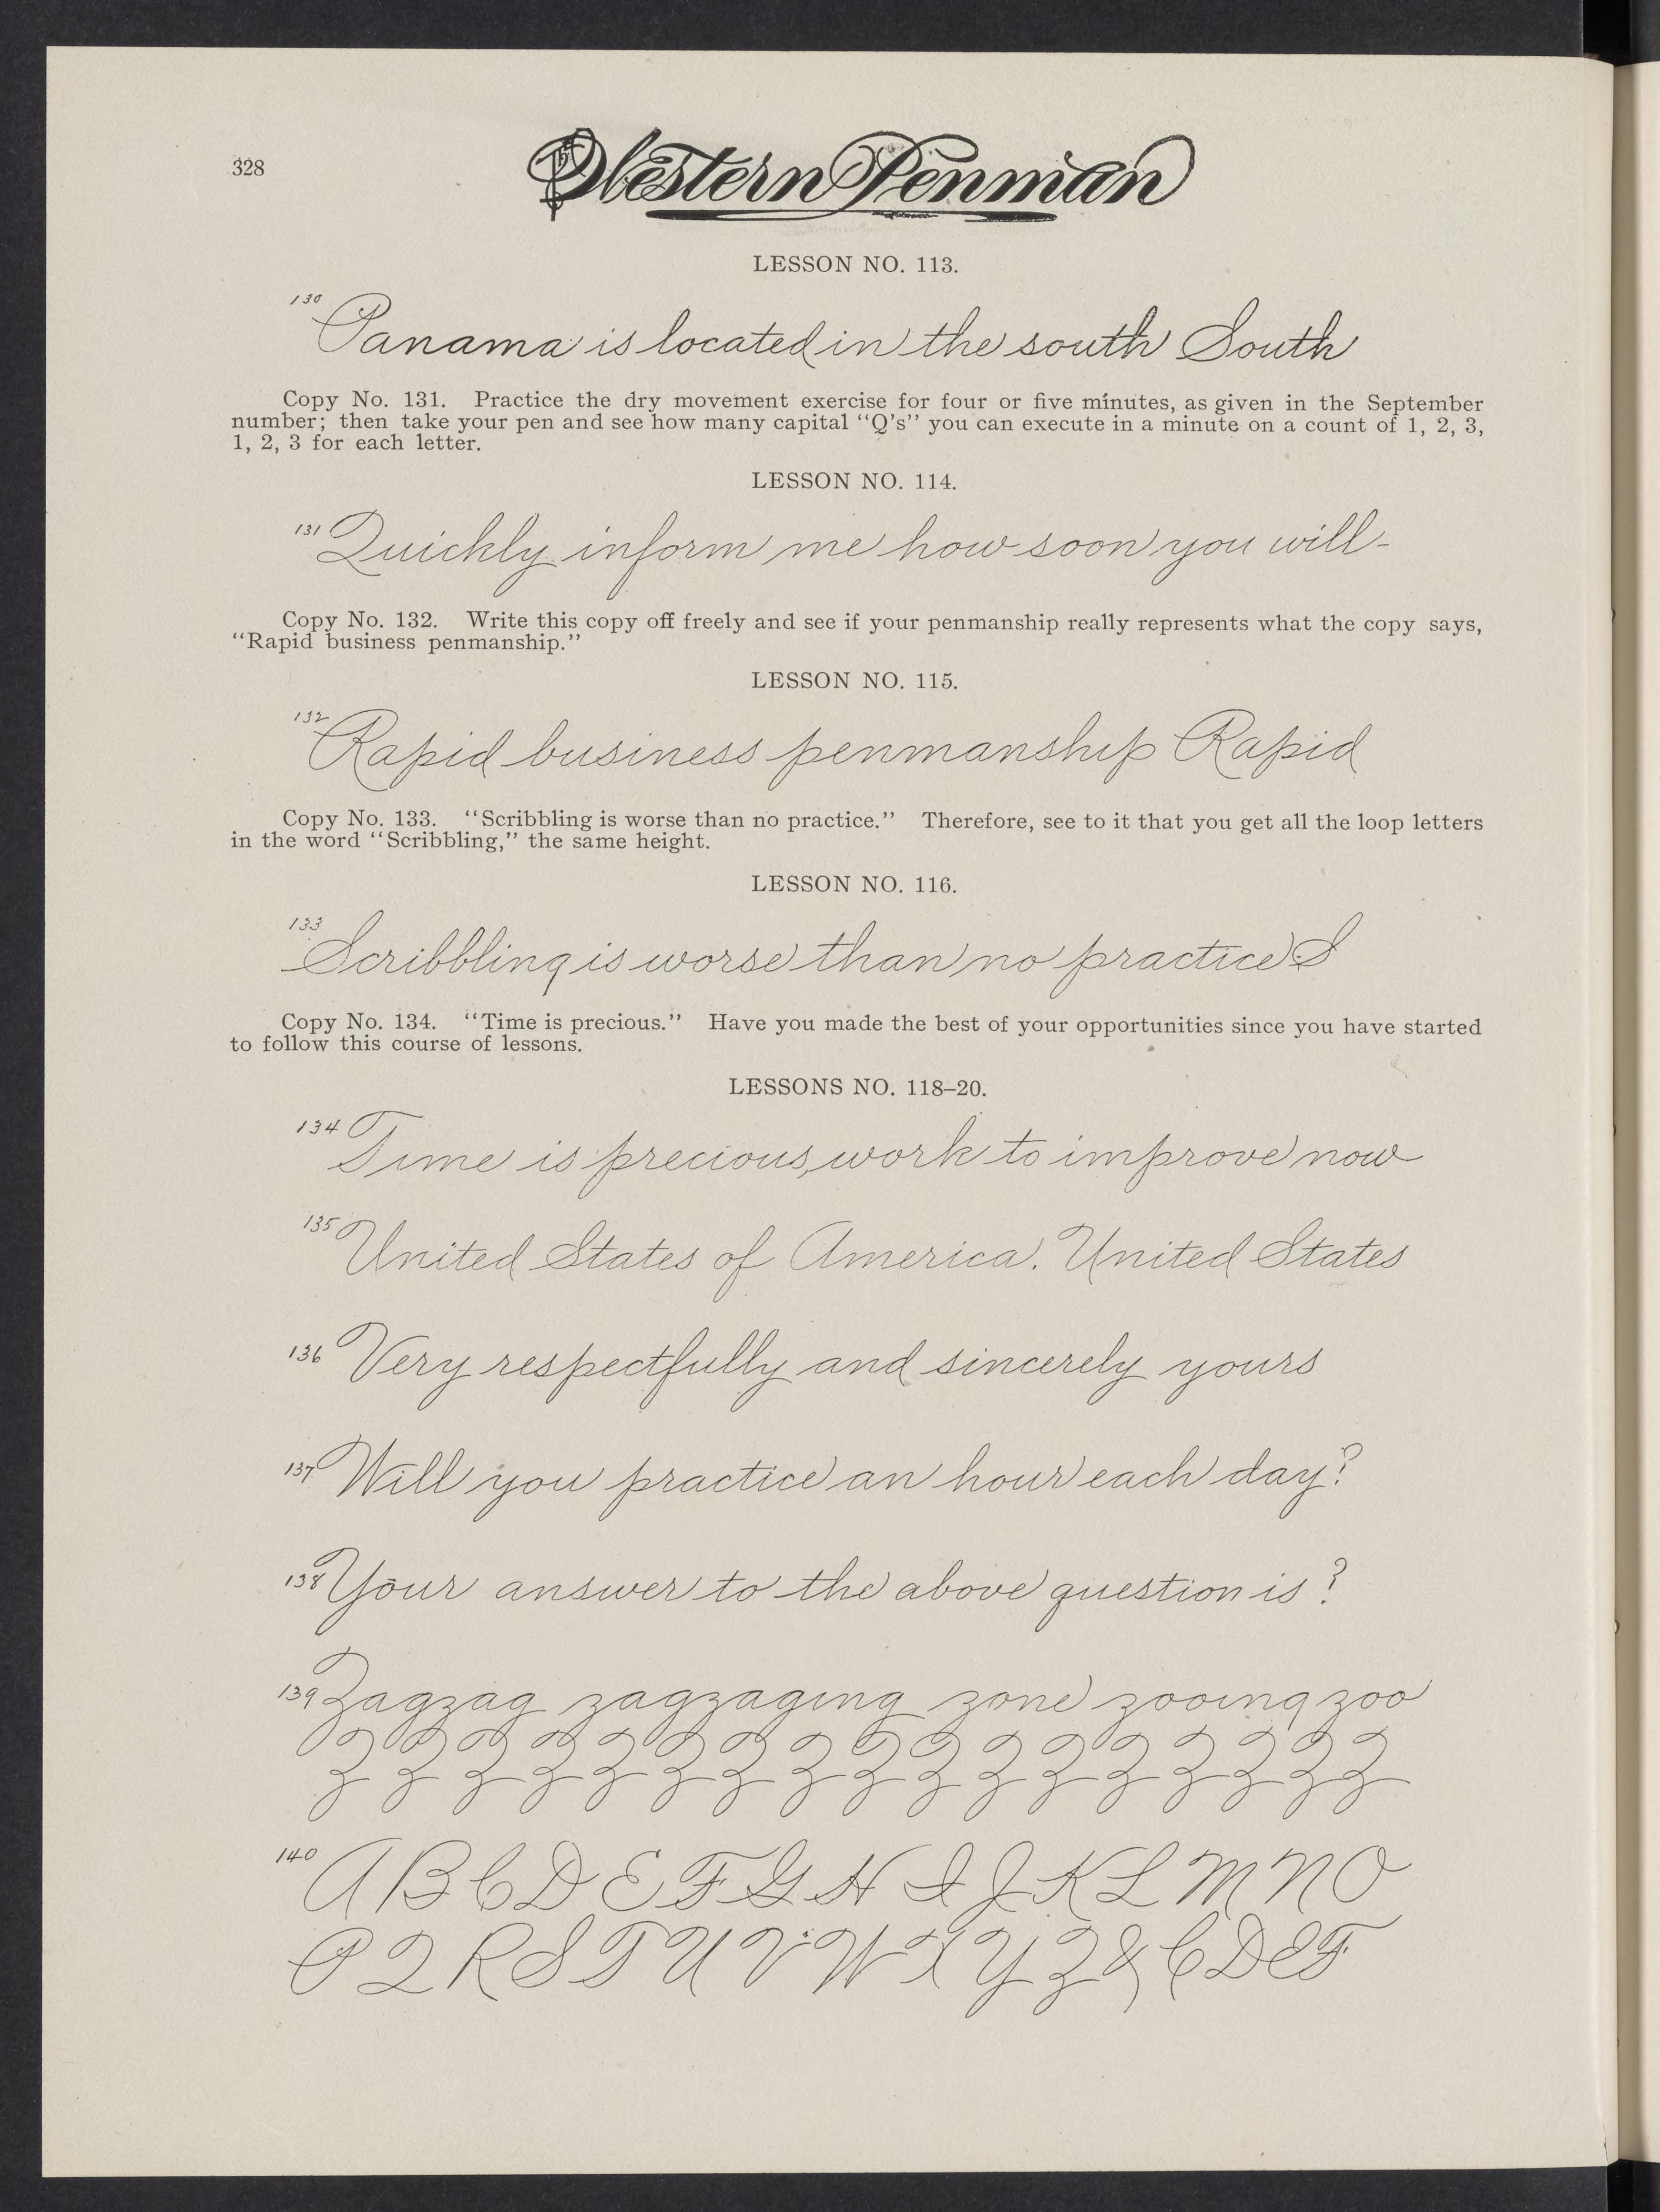 328
Western Penman
LESSON NO. 113.
130 Panama is located in the south South
Copy No. 131. Practice the dry movement exercise for four or five minutes, as given in the September
number; then take your pen and see how many capital "Q's" you can execute in a minute on a count of 1, 2, 3,
1, 2, 3 for each letter.
LESSON NO. 114.
131 Quickly inform me how soon you will-
Copy No. 132. Write this copy off freely and see if your penmanship really represents what the copy says,
"Rapid business penmanship."
LESSON NO. 115.
132 Rapid business penmanship Rapid
Copy No. 133. "Scribbling is worse than no practice." Therefore, see to it that you get all the loop letters
in the word "Scribbling," the same height.
LESSON NO. 116.
133 Scribbling is worse than no practice S
Copy No. 134. "Time is precious." Have you made the best of your opportunities since you have started
to follow this course of lessons.
LESSONS NO. 118–20.
134 Time is precious, work to improve now
135 United States of America. United States
136 Very respectfully and sincerely yours
137 Will you practice an hour each day?
138 Your answer to the above question is?
139 Zagzag zagzaging zone zooing zoo
Z Z Z Z Z Z Z Z Z Z Z Z Z Z Z Z
140 A B C D E F G H I J K L M N O
P Q R S T U V W X Y Z & C D E F